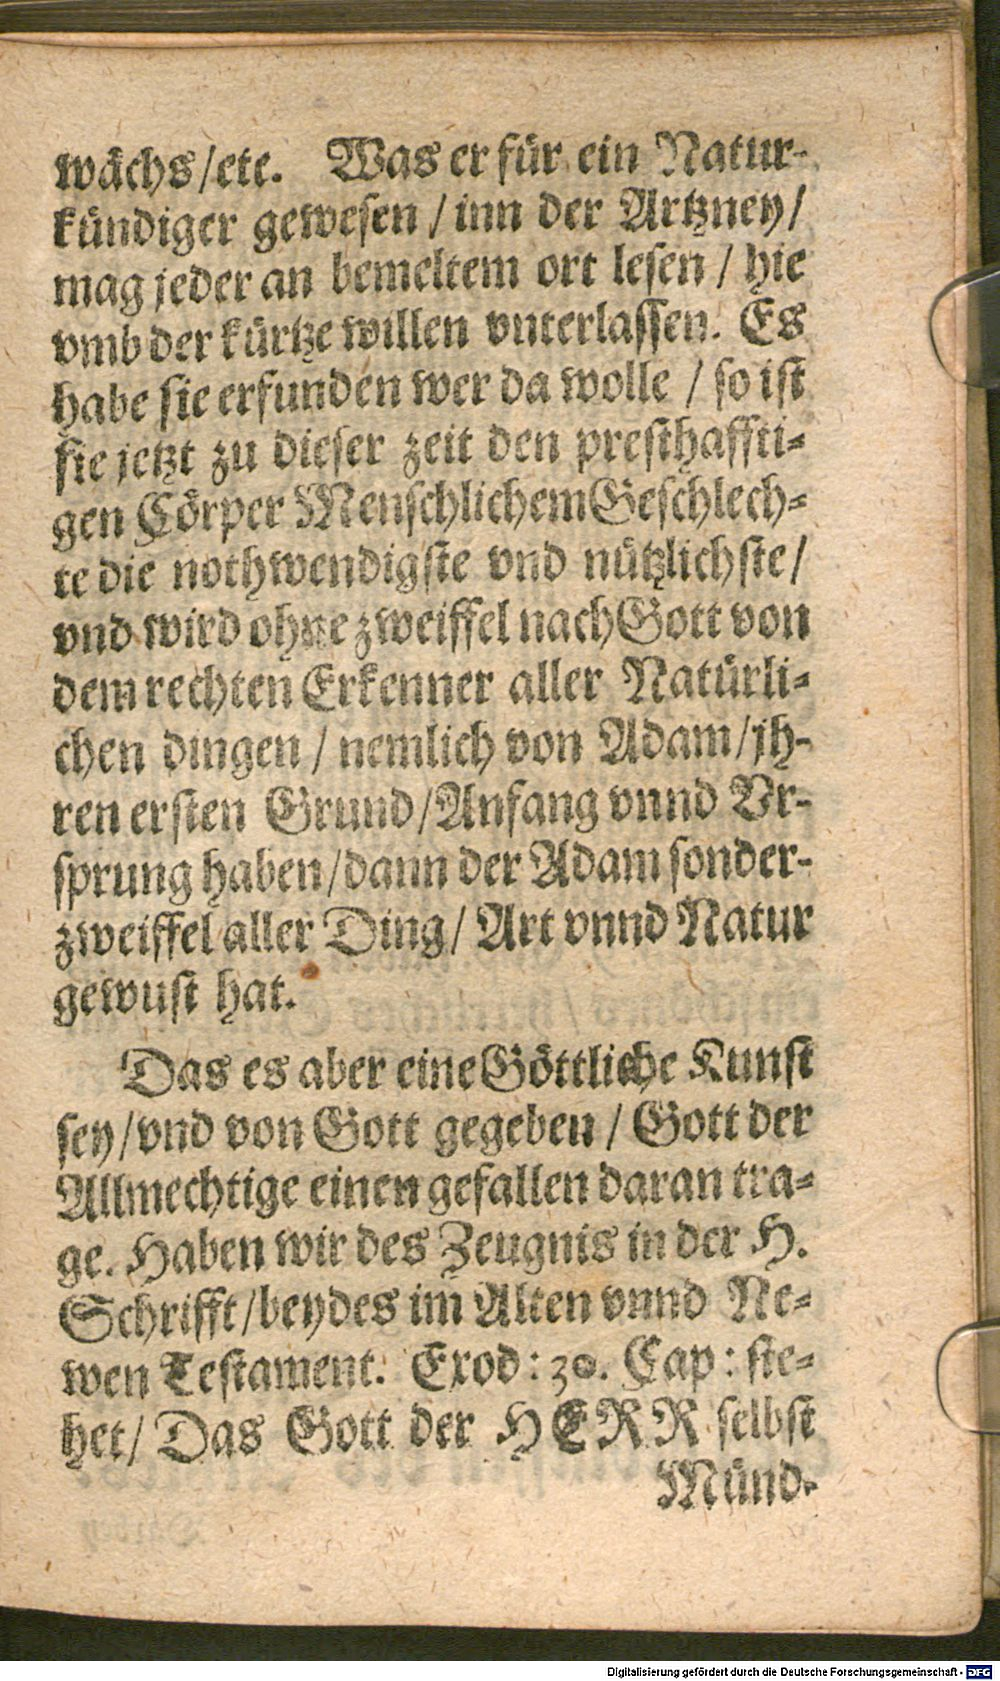 wächs/etc. Was er für ein Natur-
kündiger gewesen / inn der Artzney/
mag jeder an bemeltem ort lesen / hie
vmb der kürtze willen vnterlassen. Es
habe sie erfunden wer da wolle / so ist
sie jetzt zu dieser zeit den presthaffti-
gen Cörper Menschlichem Geschlech-
te die nothwendigste vnd nützlichste/
vnd wird ohne zweiffel nach Gott von
dem rechten Erkenner aller Natürli-
chen dingen / nemlich von Adam/jh-
ren ersten Grund/Anfang vnnd Vr-
sprung haben/dann der Adam sonder-
zweiffel aller Ding/ Art vnnd Natur
gewust hat.
Das es aber eine Göttliche Kunst
sey/vnd von Gott gegeben / Gott der
Allmechtige einen gefallen daran tra-
ge. Haben wir des Zeugnis in der H.
Schrifft/beydes im Alten vnnd Ne-
wen Testament. Exod: 30. Cap: ste-
het/ Das Gott der HERR selbst
Münd-
Digitalisierung gefördert durch die Deutsche Forschungsgemeinschaft - DFG